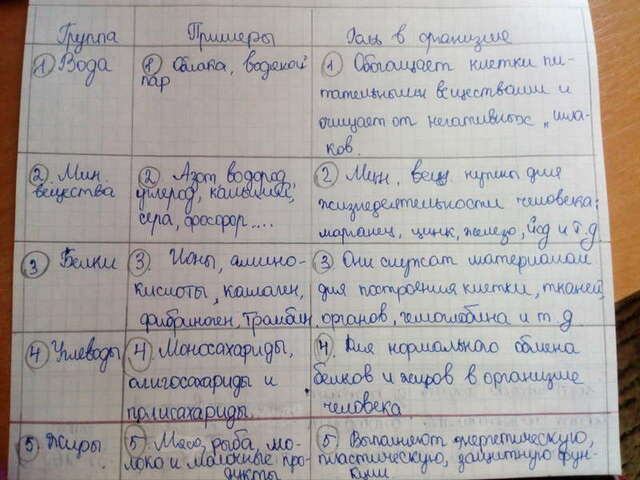 Группа Примеры Роль в организме
① Вода
⑧ Облака, водяной
пар
① Обогащает клетки пи-
тательными веществами и
очищает от негативных "шла-
ков.
② Мин.
вещества
② Азот водород,
углерод, кальций,
сера, фосфор....
② Мин. вещ. нужны для
жизнедеятельности человека:
марганец, цинк, железо, йод и т.д
③ Белки
③. Ионы, амино-
кислоты, коллаген,
фибриноген, тромбин.
③. Они служат материалом
для построения клетки, тканей,
органов, гемоглобина и т.д.
④ Углеводы
④. Моносахариды,
олигосахариды и
полисахариды.
④. Для нормального обмена
белков и жиров в организме
человека.
⑤. Жиры.
⑤. Мясо, рыба, мо-
локо и молочные про-
дукты
⑤. Выполняют энергетическую,
пластическую, защитную функ-
кции.